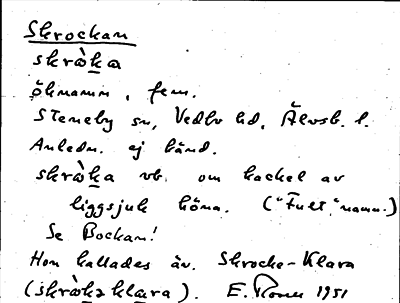 Skrockan
skrò̀ka
öknamn, fem.
Steneby sn, Vedbo hd, Älvsb. l.
Anledn. ej känd.
skrò̀ka vb. om kackel av
liggsjuk höna. ("Fult" namn.)
Se Bockan!
Hon kallades äv. Skrocke-Klara
(skrò̀kəklara). E. 1951